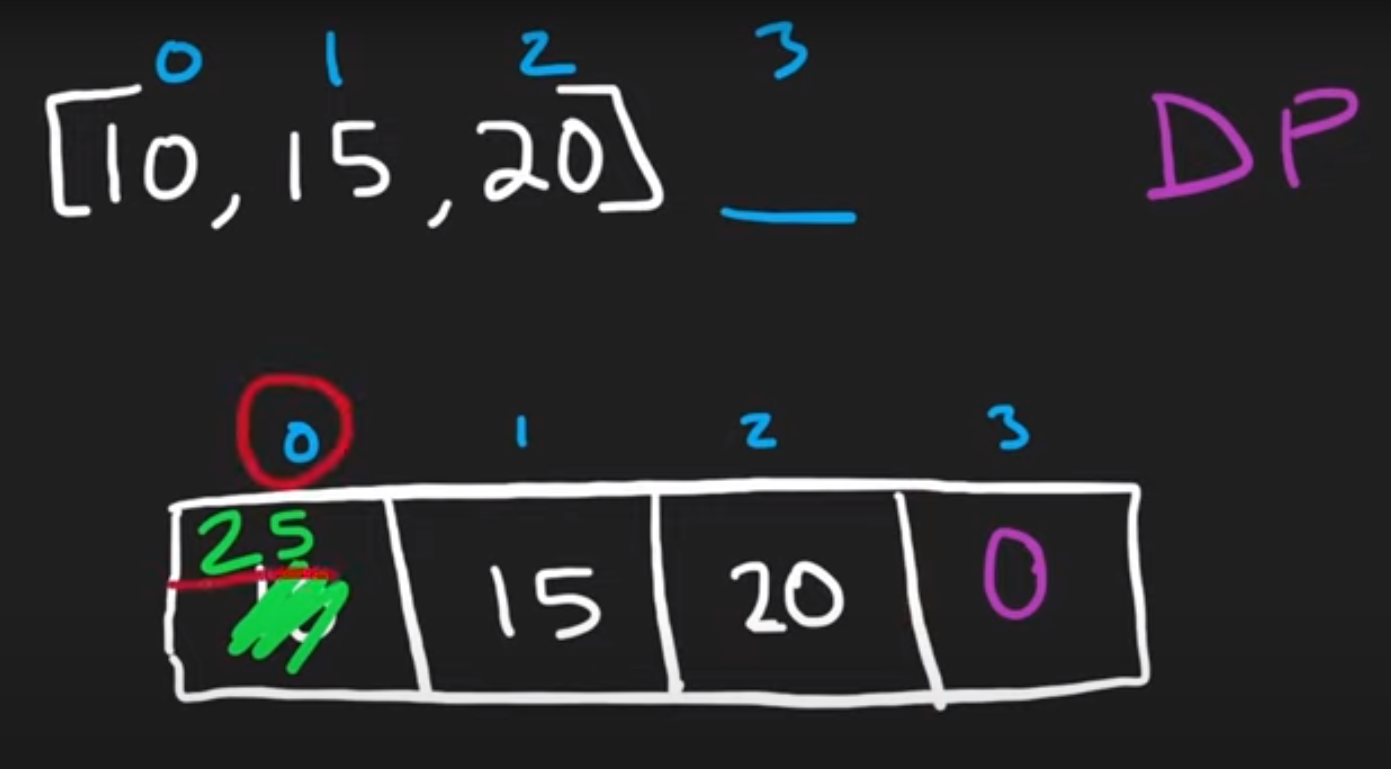 0 1 2 3
[10, 15, 20] _ DP
0 1 2 3
25
15 20 0